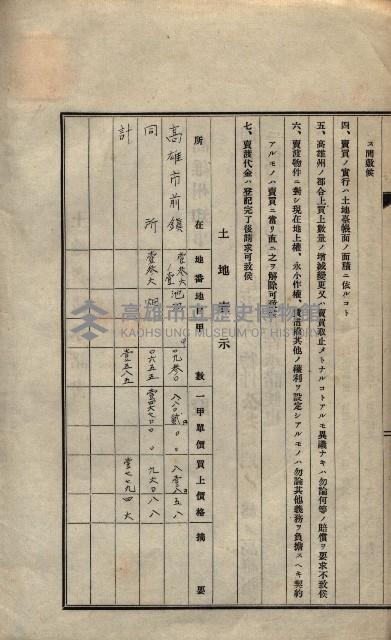 ス間敷候
四、賣買ノ實行ハ土地臺帳面ノ面積ニ依ルコト
五、高雄州ノ都合上買上數量ノ增減變更又ハ賣買取止メトナルコトアルモ異議ナキハ勿論何等ノ賠償ヲ要求不致候
六、賣渡物件ニ對シ現在地上權、永小作權、賃借權其他ノ權利ヲ設定シアルモノハ勿論其他義務ヲ負擔スヘキ契約
アルモノハ賣買ニ當リ直ニ之ヲ解除可致候
七、賣渡代金ハ登記完了後請求可致候
土地表示
所在 地番 地目 甲數 一甲單價 買上價格 摘要
高雄市前鎮
同所
計
高雄市立歷史博物館
KAOHSIUNG MUSEUM OF HISTORY